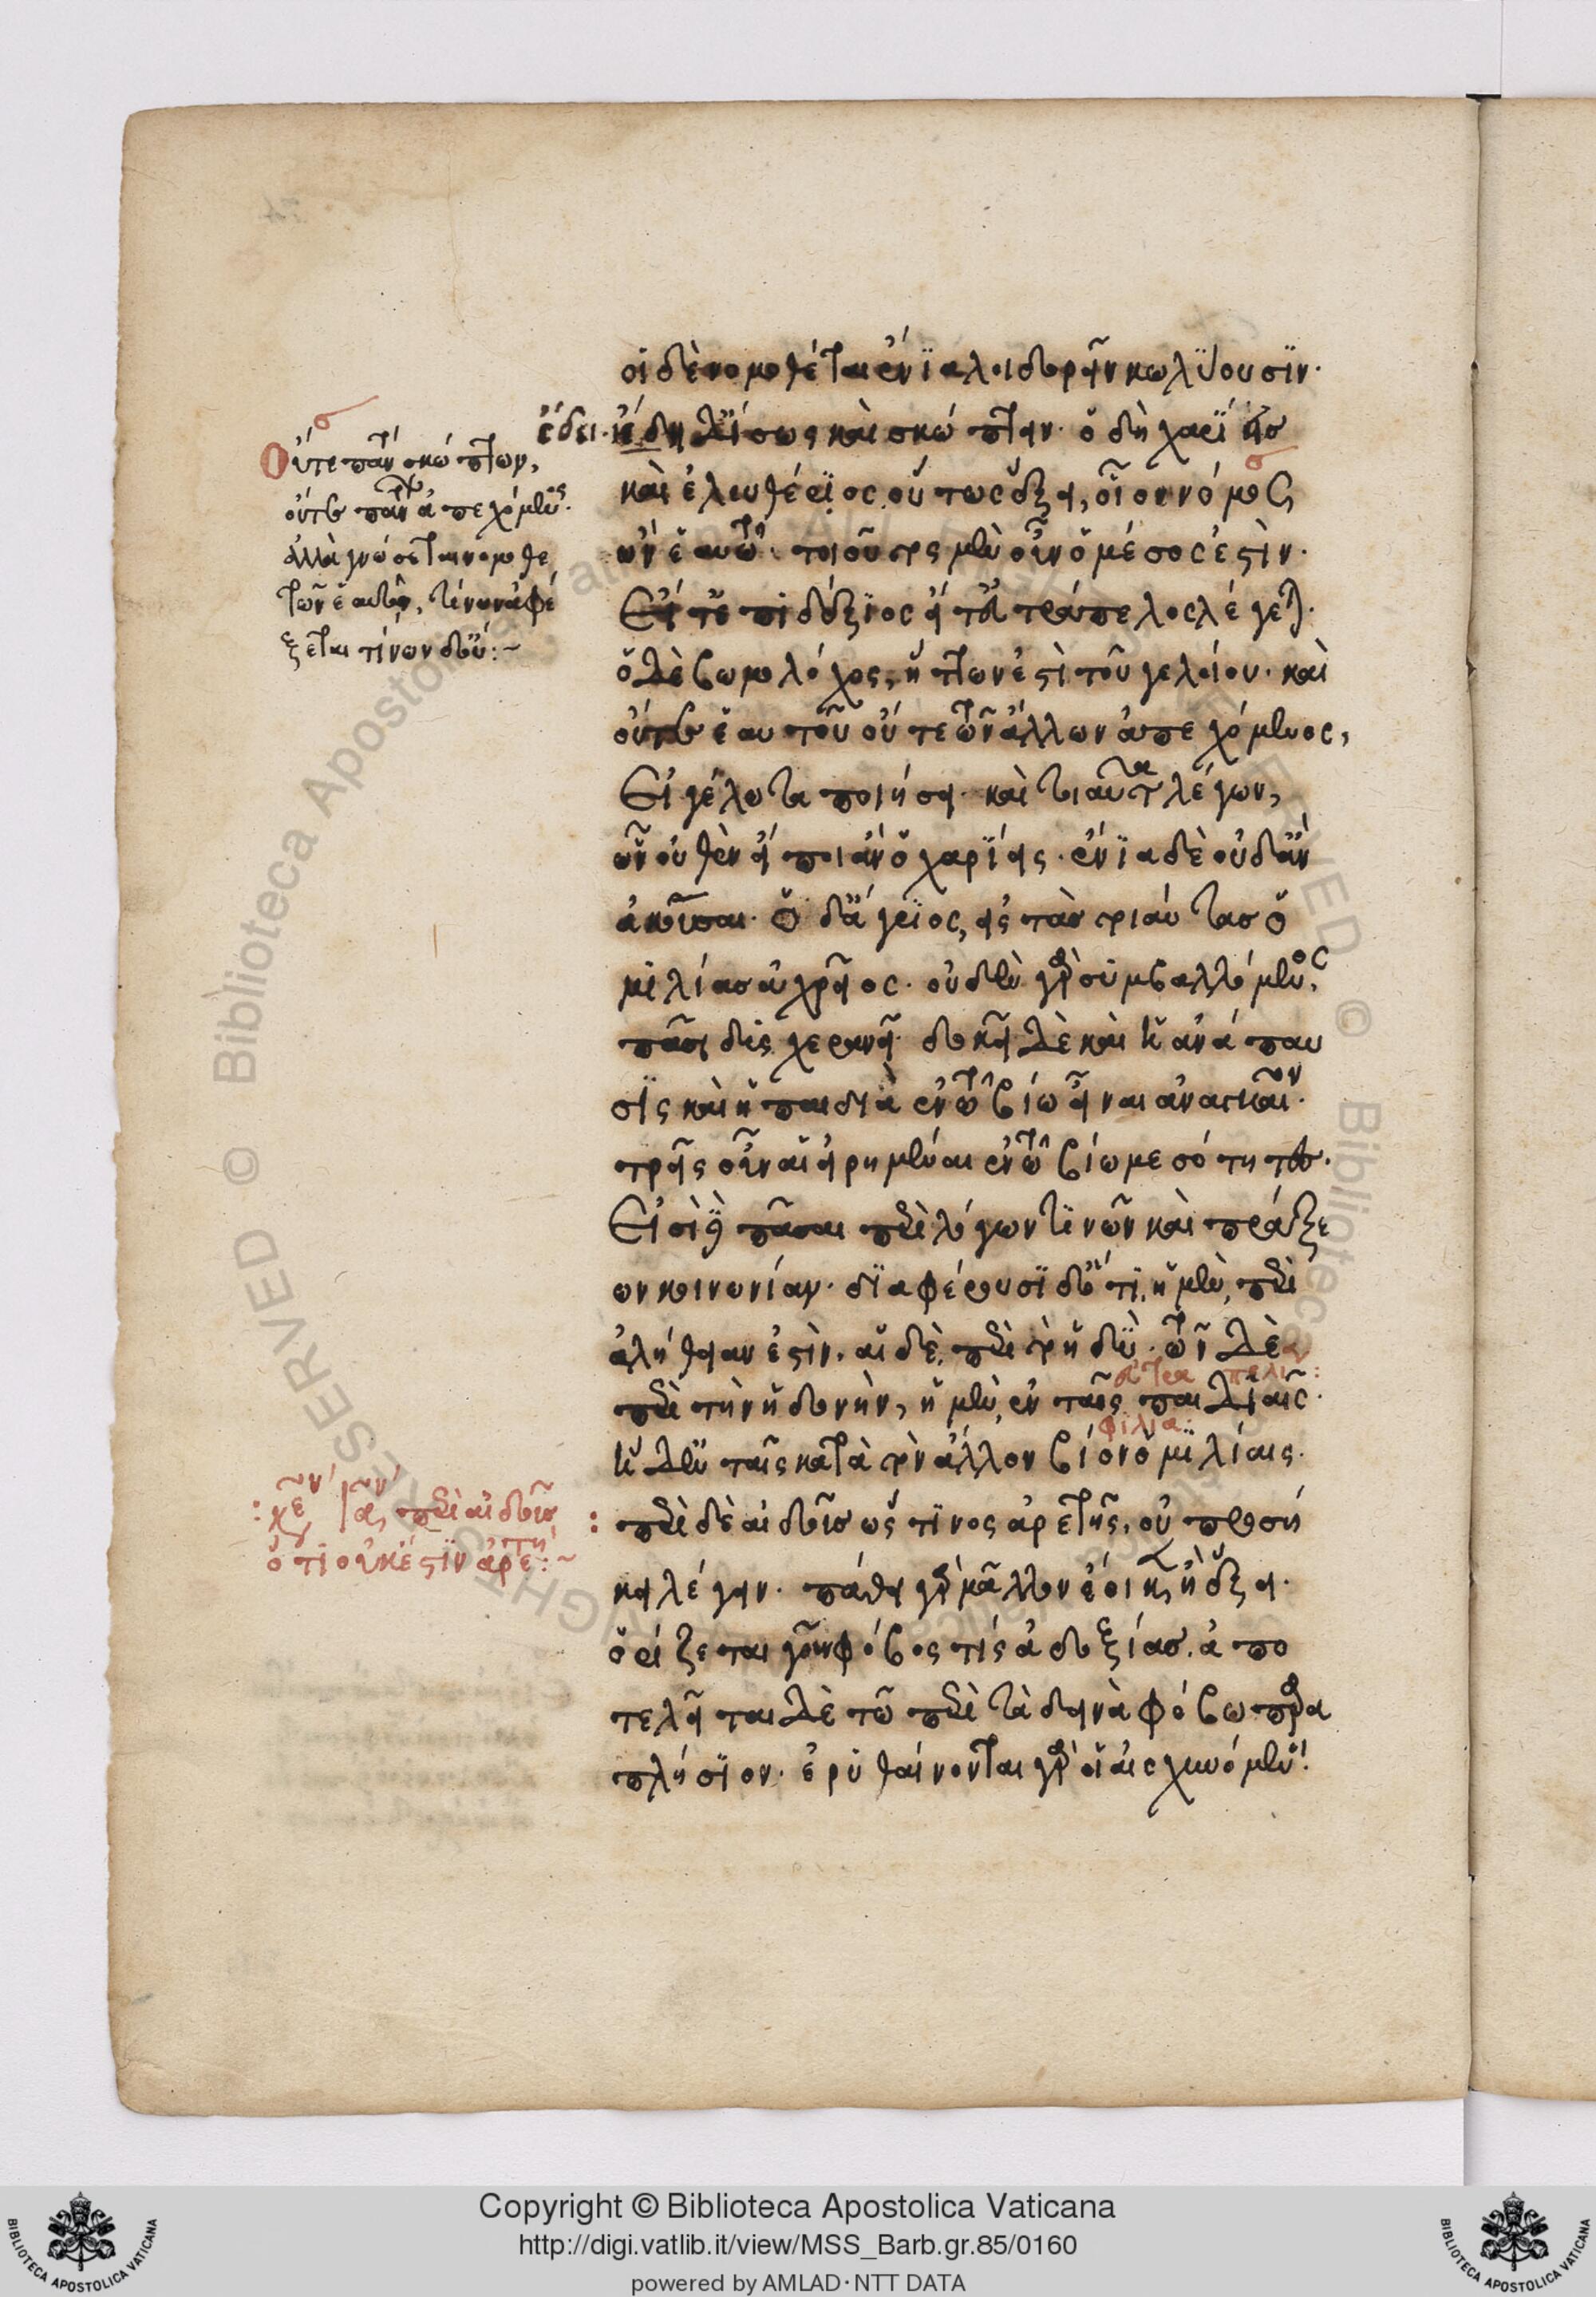 οἱ δὲ νομοθέται ἔνια λοιδορεῖν κωλύουσιν·
ἔδει· ἔδει δ' ἴσως καὶ σκώπτειν· ὁ δὴ χαρίεις
καὶ ἐλευθέριος οὕτως ἕξει, οἷον νόμος
ὢν ἑαυτῷ· τοιοῦτος μὲν οὖν ὁ μέσος ἐστὶν·
εἴτ' ἐπιδέξιος εἴτ' εὐτράπελος λέγεται·
ὁ δὲ βωμολόχος, ἥττων ἐστὶ τοῦ γελοίου· καὶ
οὔτε ἑαυτοῦ οὔτε τῶν ἄλλων ἀπεχόμενος,
εἰ γέλωτα ποιήσει· καὶ τοιαῦτα λέγων,
ὧν οὐθὲν εἴποι ἂν ὁ χαρίεις· ἔνια δὲ οὐδ' ἂν
ἀκοῦσαι· ὁ δ' ἄγριος, εἰς τὰς τοιαύτας ὁ
μιλίας ἀχρεῖος· οὐδὲν γὰρ συμβαλλόμενος,
πᾶσι δυσχεραίνει· δοκεῖ δὲ καὶ ἡ ἀνάπαυ
σις καὶ ἡ παιδιὰ ἐν τῷ βίῳ εἶναι ἀναγκαῖον·
τρεῖς οὖν αἱ εἰρημέναι ἐν τῷ βίῳ μεσότητες·
εἰσὶ δὲ πᾶσαι περὶ λόγων τινῶν καὶ πράξε
ων κοινωνίαν· διαφέρουσι δ' ὅτι, ἡ μὲν, περὶ
ἀλήθειαν ἐστὶν· αἱ δὲ, περὶ τὸ ἡδύ· τῶν δὲ
περὶ τὴν ἡδονὴν, ἡ μὲν, ἐν ταῖς παιδιαῖς·
φιλία:
ἡ δ' ἐν ταῖς κατὰ τὸν ἄλλον βίον ὁμιλίαις·
περὶ δὲ αἰδοῦς ὥς τινος ἀρετῆς, οὐ προσή
κει λέγειν· πάθει γὰρ μᾶλλον ἔοικεν, ἢ ἕξει·
ὁρίζεται γοῦν φόβος τίς ἀδοξίας· ἀπο
τελεῖται δὲ τῷ περὶ τὰ δεινὰ φόβῳ παρα
πλήσιον· ἐρυθαίνονται γὰρ οἱ αἰσχυνόμενοι·
Οὔτε πᾶν σκώπτων,
οὔτε παντὸς ἀπεχόμενος·
ἀλλὰ γνώσεται νομοθε
τῶν ἑαυτὸν, τίνων ἀφέ
ξεται τίνων δ' οὔ:~
περὶ αἰδοῦς
ὅτι οὐκ ἔστιν ἀρετή:~
Copyright © Biblioteca Apostolica Vaticana
http://digi.vatlib.it/view/MSS_Barb.gr.85/0160
powered by AMLAD·NTT DATA